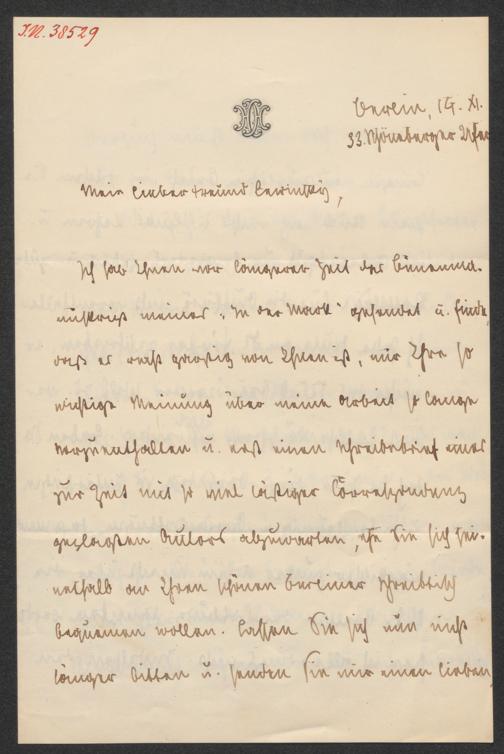 I.N. 38529
Berlin, 14. XI.
33. Schöneberger Ufer
Mein lieber Freund Lewinsky,
Ich hab Ihnen vor längerer Zeit das Bühnenma-
nuskript meines „In der Mark" gesendet u. finde,
dass es recht garstig von Ihnen ist, mir Ihre so
wichtige Meinung über meine Arbeit so lange
vorzuenthalten u. erst einen Schreibebrief eines
zur Zeit mit so viel lästiger Correspondenz
geplagten Autors abzuwarten, ehe Sie sich mei-
nethalb an Ihren schönen Berliner Schreibtisch
bequemen wollen. Lassen Sie sich nun nicht
länger bitten u. senden Sie mir einen lieben,